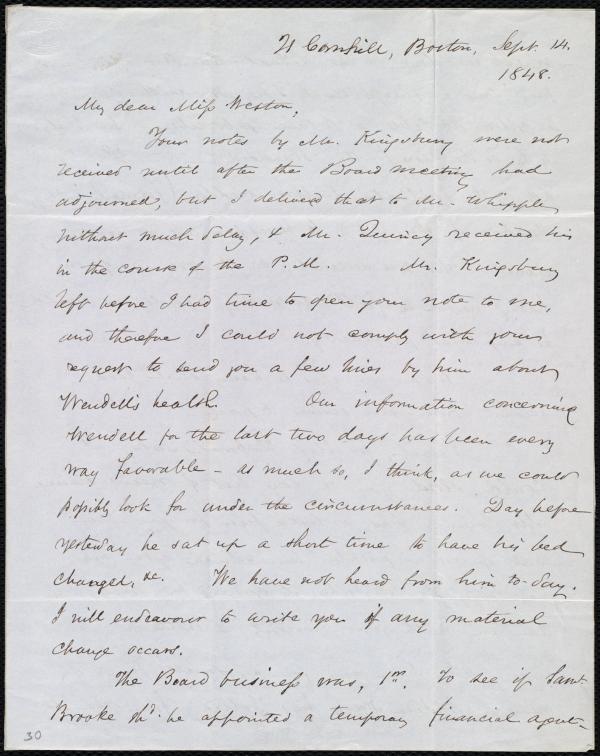 21 Cornhill, Boston, Sept. 14.
1848.
My dear Miss Weston,
Your notes by Mr. Kingsbury were not
received until after the Board meeting had
adjourned, but I delivered that to Mr. Whipple
without much delay, & Mr. Quincy received his
in the course of the P.M. Mr. Kingsbury
left before I had time to open your note to me,
and therefore I could not comply with your
request to send you a few lines by him about
Wendell's health. Our information concerning
Wendell for the last two days has been every
way favorable – as much so, I think, as we could
possibly look for under the circumstances. Day before
yesterday he sat up a short time to have his bed
changed, &c. We have not heard from him to-day.
I will endeavour to write you if any material
change occurs.
The Board business was, 1st. To see if Saml
Brooke shd. be appointed a temporary financial agent –
30